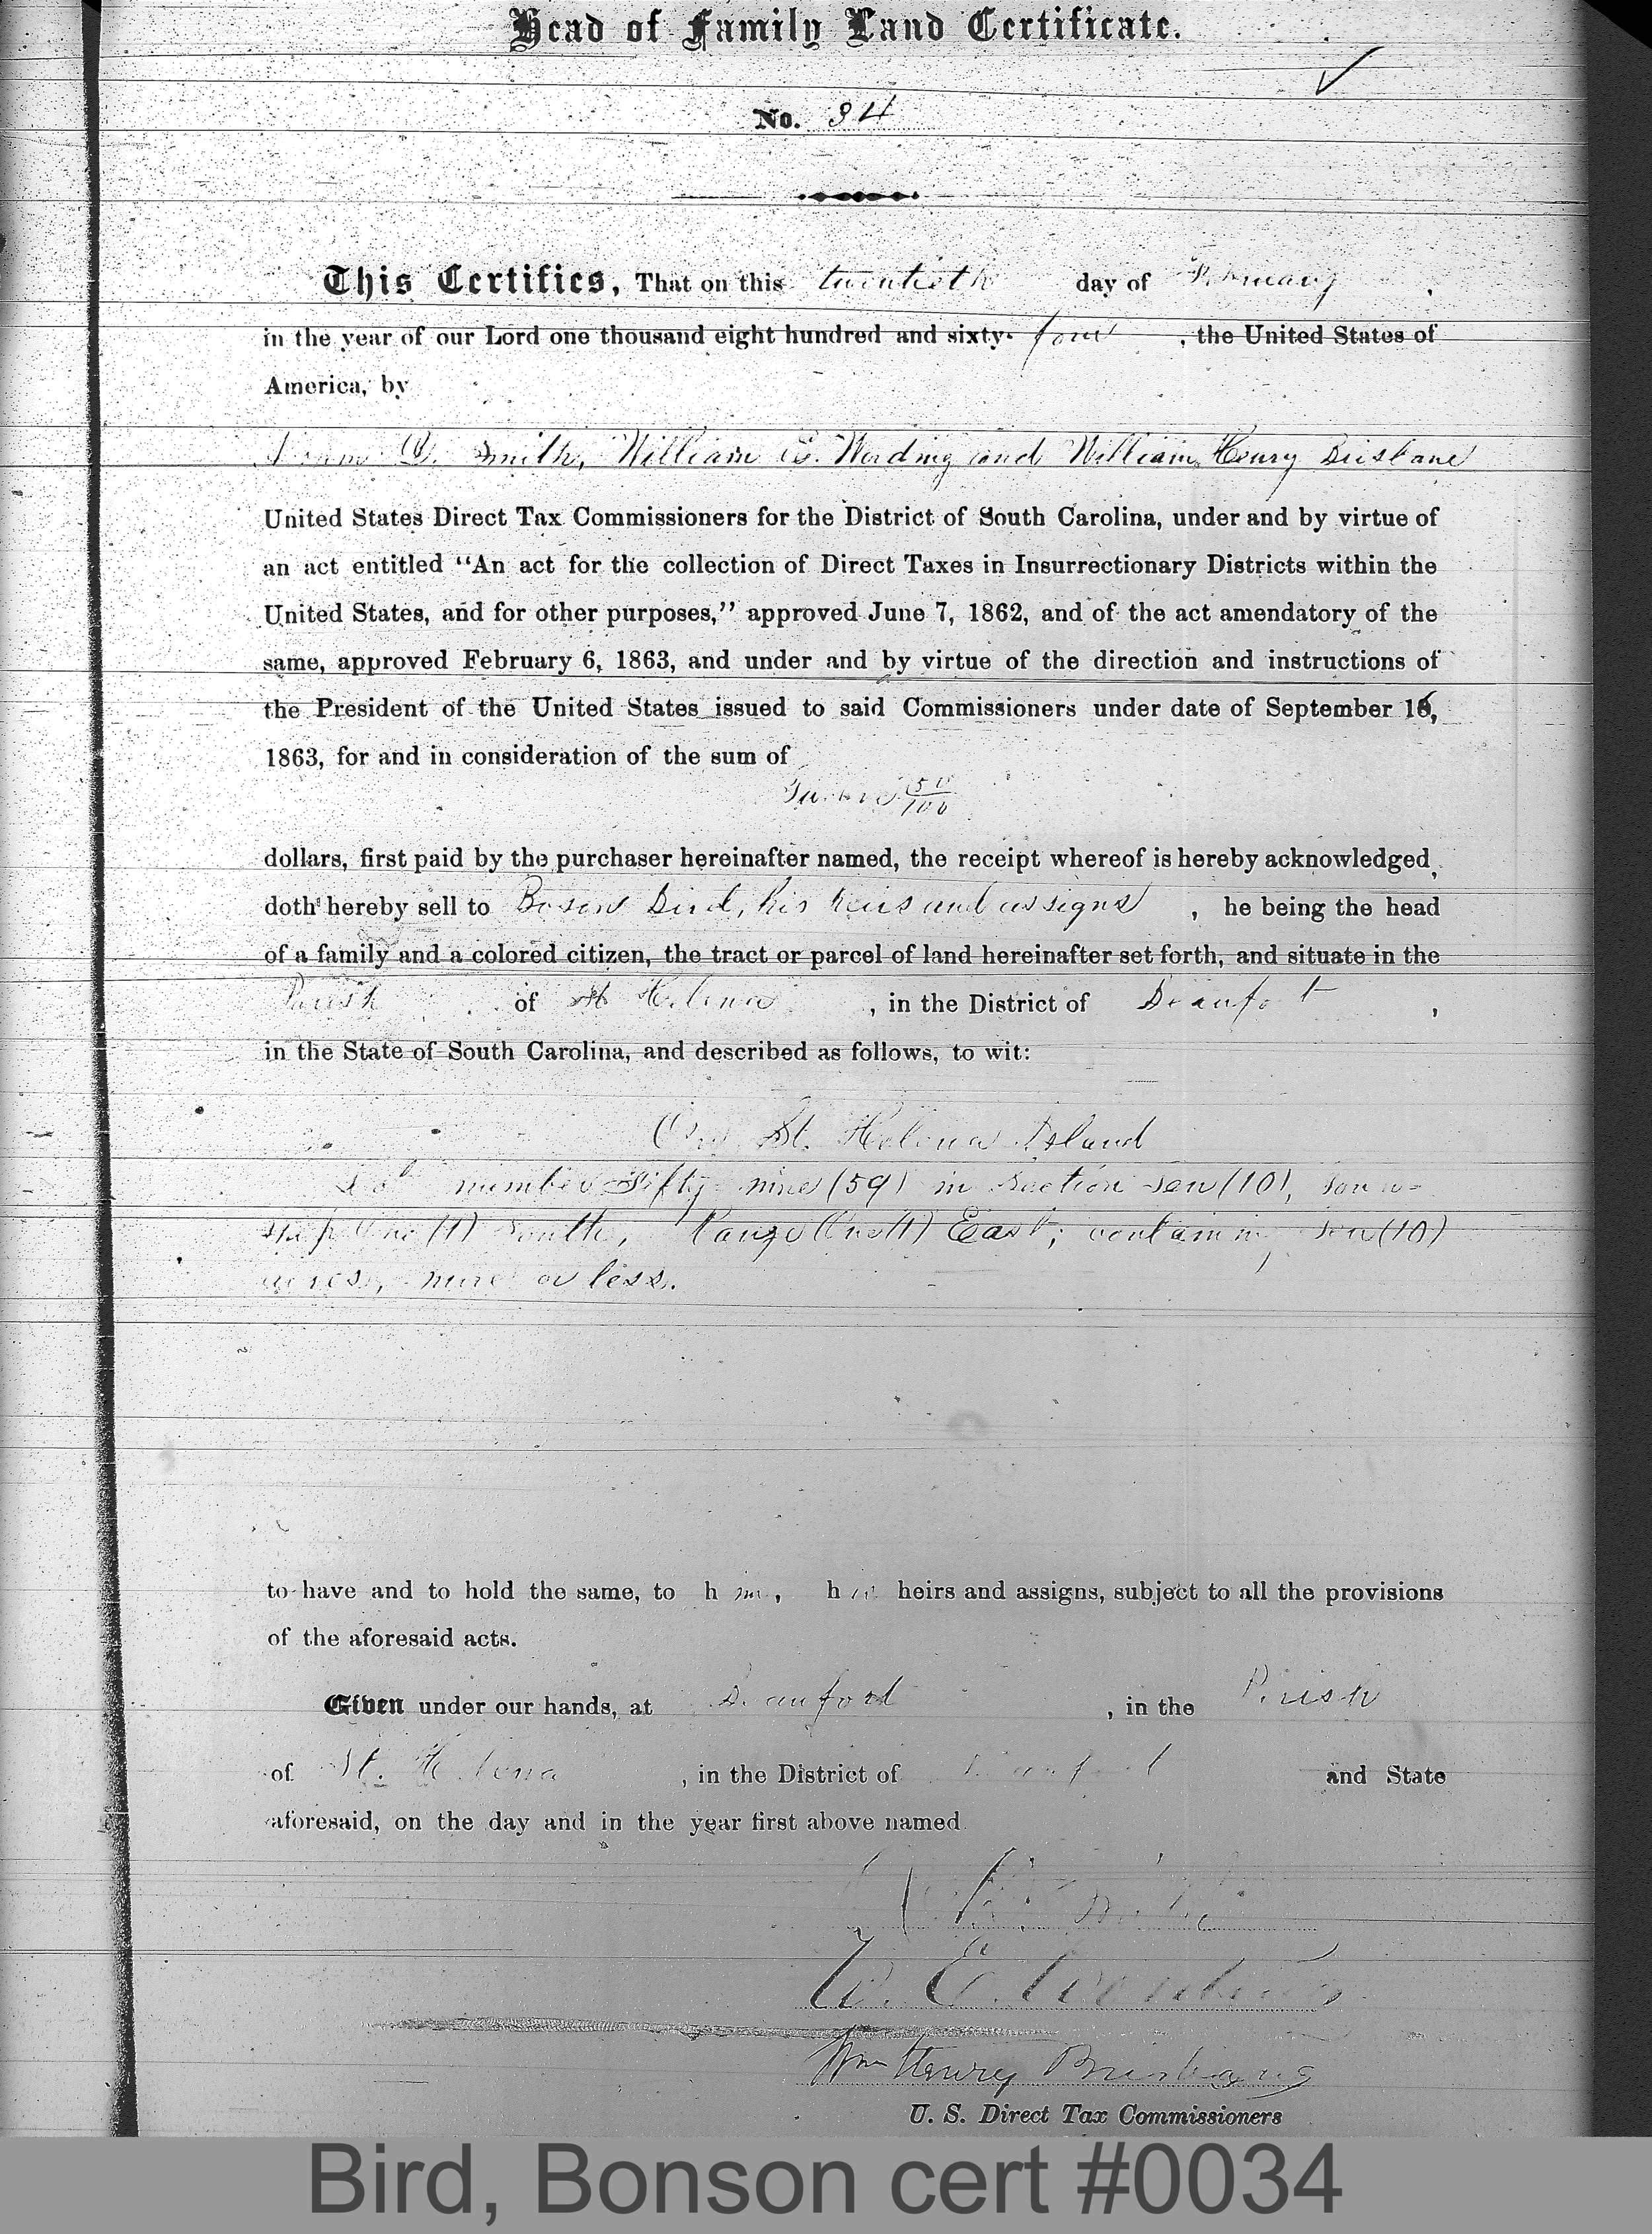 Head of Family Land Certificate.
No. 34
This Certifies, That on this twentieth day of February,
in the year of our Lord one thousand eight hundred and sixty-four, the United States of
America, by
Smith, William E. Wording and William Henry Brisbane
United States Direct Tax Commissioners for the District of South Carolina, under and by virtue of
an act entitled “An act for the collection of Direct Taxes in Insurrectionary Districts within the
United States, and for other purposes,” approved June 7, 1862, and of the act amendatory of the
same, approved February 6, 1863, and under and by virtue of the direction and instructions of
the President of the United States issued to said Commissioners under date of September 16,
1863, for and in consideration of the sum of
50/100
dollars, first paid by the purchaser hereinafter named, the receipt whereof is hereby acknowledged,
doth hereby sell to Bird, his heirs and assigns, he being the head
of a family and a colored citizen, the tract or parcel of land hereinafter set forth, and situate in the
Parish of St Helena, in the District of Beaufort,
in the State of South Carolina, and described as follows, to wit:
On St. Helena Island
Lot number Fifty-nine (59) in Section Ten (10), Town-
ship One (1) South, Range One (1) East; containing Ten (10)
acres, more or less.
to have and to hold the same, to him, his heirs and assigns, subject to all the provisions
of the aforesaid acts.
Given under our hands, at Beaufort, in the Parish
of St. Helena, in the District of Beaufort and State
aforesaid, on the day and in the year first above named
W. E. Wording
Wm Henry Brisbane
U. S. Direct Tax Commissioners
Bird, Bonson cert #0034